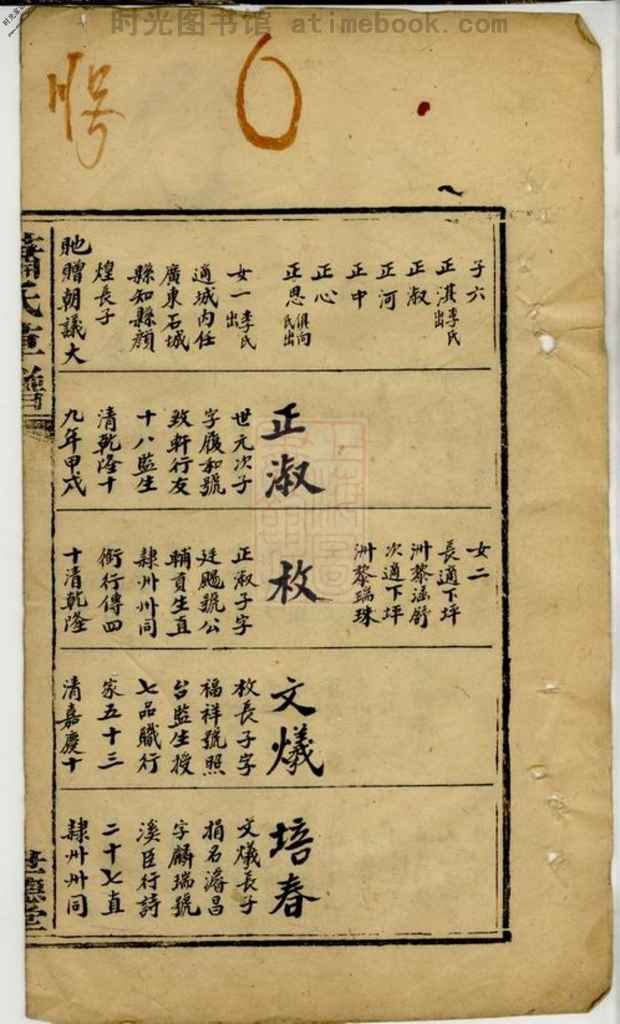 时光图书馆 atimebook.com
子六
正淇李氏出
正淑
正河
正中
正心
正恩俱向氏出
女一李氏出
適城内任
廣東石城
縣知縣顏
煌長子
貤贈朝議大
正淑
世元次子
字履和號
致軒行友
十八監生
清乾隆十
九年甲戌
女二
長適下坪
洲黎涵舒
次適下坪
洲黎瑞珠
枚
正淑子字
廷颺號公
輔貢生直
隸州州同
銜行傳四
十清乾隆
文爔
枚長子字
福祥號照
台監生授
七品職行
家五十三
清嘉慶十
培春
文爔長子
捐名濬昌
字麟瑞號
溪臣行詩
二十七直
隸州州同